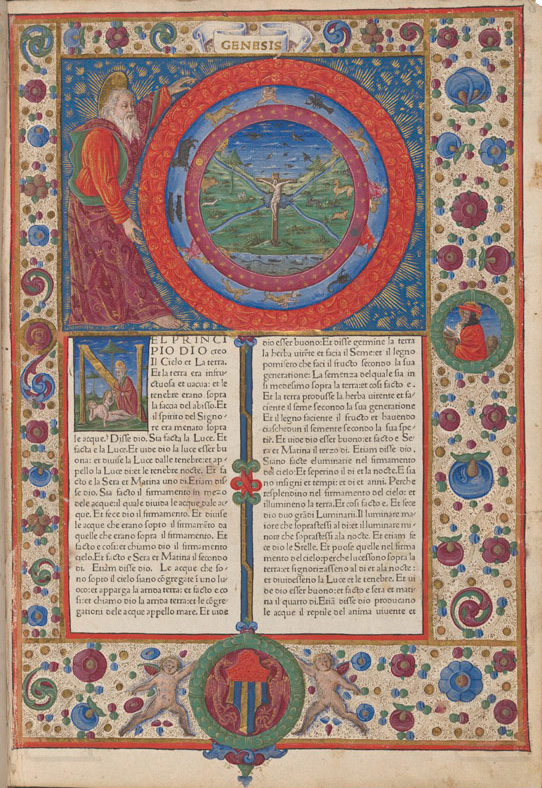 GENESIS
EL PRINCI
PIO DIO creo
Il Cielo et La terra.
Et la terra era infru
ctuosa et uacua: et le
tenebre erano sopra
la facia del abisso. Et
il spirito del Signo-
re era menato sopra
le acque. Disse dio. Sia facta la Luce. Et
facta e la Luce. Et uide dio la luce esser bu
ona: et diuise la Luce dalle tenebre: et ap-
pello la Luce di et le tenebre nocte. Et fa
cto e la Sera et Matina uno di. Etiam dis-
se dio. Sia facto il firmamento in mezo
dele acque: il quale diuida le acque dale ac-
que. Et fece dio il firmamento. Et diuise
le acque che erano sopto il firmamẽto da
quelle che erano sopra il firmamento. Et
facto e cosi: et chiamo dio il firmamento
cielo. Et facto e Sera et Matina il secondo
di. Etiãm disse dio. Le acque che so-
no sopto il cielo siano cõgregate i uno luo
co: et apparga la arrida terra: et facto e co
si: et chiamo dio la arrida terra: et le cõgre-
gationi dele acque appello mare. Et uide
dio esser buono: Et disse germine la terra
la herba uirẽte et facia il Seme: et il legno
pomifero che faci il fructo secondo la sua
generatione: La semenza del quale sia in
si medesimo sopra la terra: et cosi facto e.
Et la terra produsse la herba uirente et fa-
ciente il seme secondo la sua generatione
Et il legno faciente il fructo et hauendo
ciaschedun il semente secondo la sua spe-
tie. Et uide dio esser buono: et facto e Se-
ra et Matina il terzo di. Etiam disse dio.
Siano facte eluminarie nel firmamento
del cielo: Et seperino il di et la nocte. E sia
no insigni et tempi: et di et anni. Perche
resplendino nel firmamento del cielo: et
illumineno la terra. Et cosi facto e. Et fece
dio duo grãdi Luminarii. Il luminare ma
iore che soprastessi al di: et illuminare mi-
nore che soprastessi ala nocte. Et etiam fe
ce dio le Stelle. Et puose quelle nel firma
mento del cielo: perche lucessono sopra la
terra: et signorizasseno al di et ala nocte:
et diuidesseno la Luce et le tenebre. Et ui
de dio esser buono: et facto e sera et mati
na il quarto di. Etiã disse dio producano
le acque il reptile del anima uiuente et